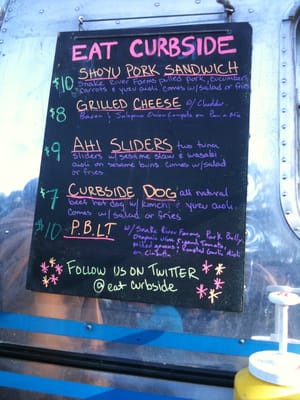 EAT CURBSIDE
$10 SHOYU PORK SANDWICH
Snake River Farms pulled pork, cucumbers
carrots & yuzu aioli comes w/salad or fries
$8 GRILLED CHEESE w/ Cheddar,
Bacon & Jalapeno Onion Compote on Pan a Mie
$9 AHI SLIDERS two tuna
sliders w/sesame slaw & wasabi
aioli on sesame buns comes w/salad
or fries
$7 CURBSIDE DOG all natural
beef hot dog w/ kimchi & yuzu aioli.
comes w/ salad or fries
$10 P.B.L.T w/ Snake River Farms Pork Belly,
Tomato,
& Roasted Garlic Aioli
on Ciabatta
FOLLOW US ON TWITTER
@eatcurbside